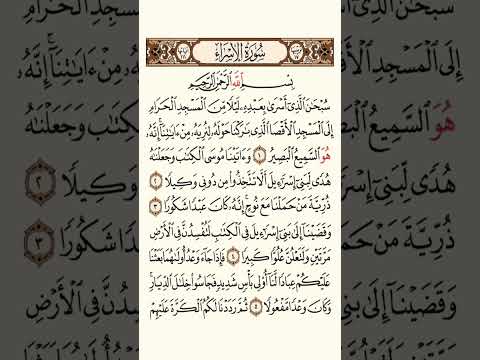 سُورَةُ الإِسْرَاءِ
بِسْمِ اللَّهِ الرَّحْمَٰنِ الرَّحِيمِ
سُبْحَٰنَ الَّذِىٓ أَسْرَىٰ بِعَبْدِهِۦ لَيْلًا مِّنَ الْمَسْجِدِ الْحَرَامِ
إِلَى الْمَسْجِدِ الْأَقْصَا الَّذِى بَٰرَكْنَا حَوْلَهُۥ لِنُرِيَهُۥ مِنْ ءَايَٰتِنَآ ۚ إِنَّهُۥ
هُوَ السَّمِيعُ الْبَصِيرُ ١ وَءَاتَيْنَا مُوسَى الْكِتَٰبَ وَجَعَلْنَٰهُ
هُدًى لِّبَنِىٓ إِسْرَٰٓءِيلَ أَلَّا تَتَّخِذُوا۟ مِن دُونِى وَكِيلًا ٢
ذُرِّيَّةَ مَنْ حَمَلْنَا مَعَ نُوحٍ ۚ إِنَّهُۥ كَانَ عَبْدًا شَكُورًا ٣
وَقَضَيْنَآ إِلَىٰ بَنِىٓ إِسْرَٰٓءِيلَ فِى الْكِتَٰبِ لَتُفْسِدُنَّ فِى الْأَرْضِ
مَرَّتَيْنِ وَلَتَعْلُنَّ عُلُوًّا كَبِيرًا ٤ فَإِذَا جَآءَ وَعْدُ أُولَىٰهُمَا بَعَثْنَا
عَلَيْكُمْ عِبَادًا لَّنَآ أُو۟لِى بَأْسٍ شَدِيدٍ فَجَاسُوا۟ خِلَٰلَ الدِّيَارِ ۚ
وَكَانَ وَعْدًا مَّفْعُولًا ٥ ثُمَّ رَدَدْنَا لَكُمُ الْكَرَّةَ عَلَيْهِمْ